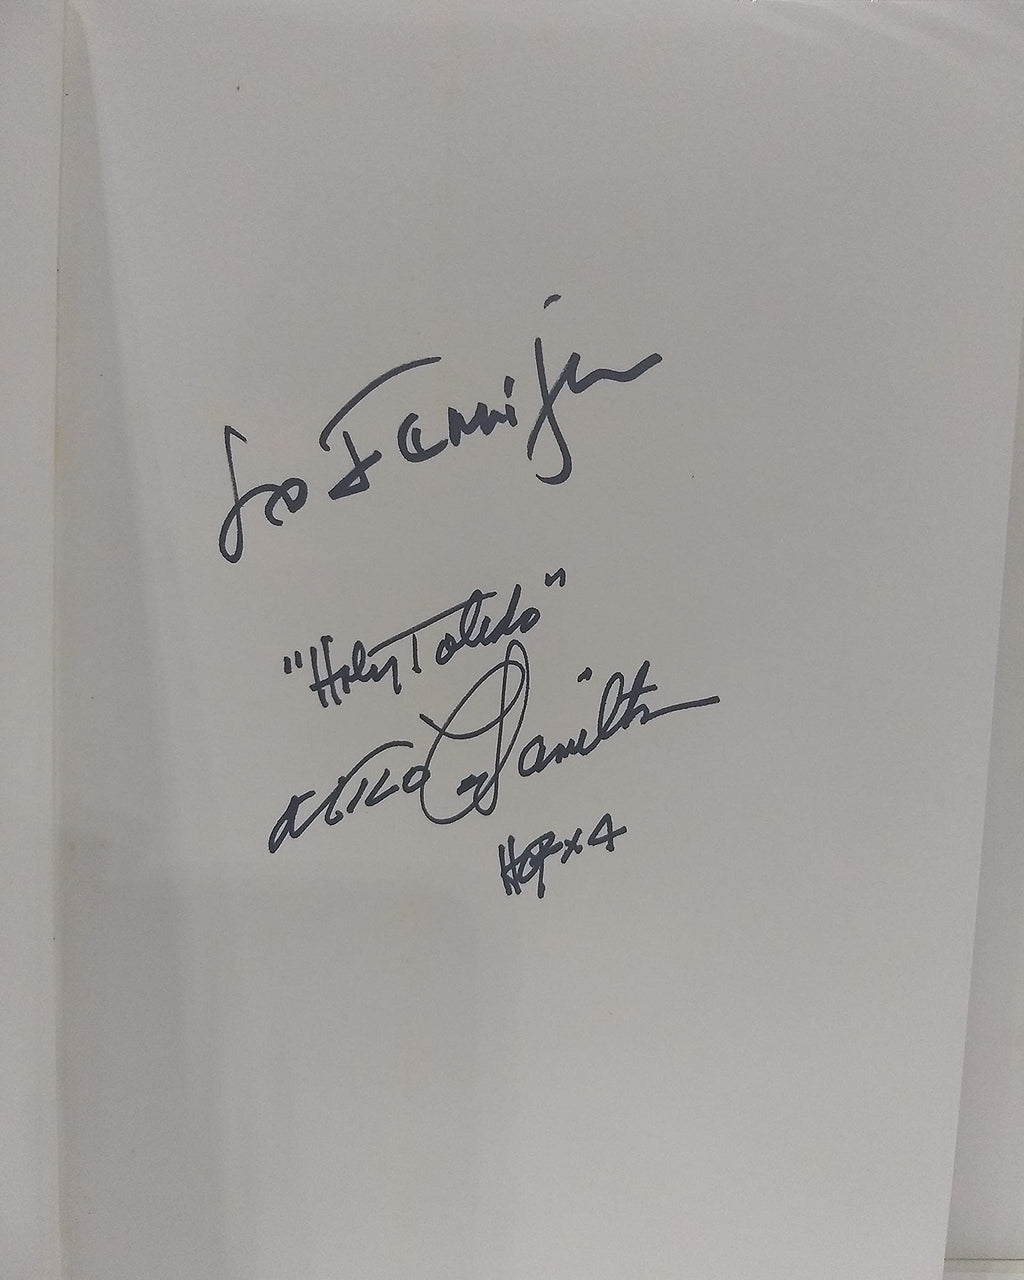 To Tannijn
"Holy Toledo"
Milo Hamilton
HOF x 4